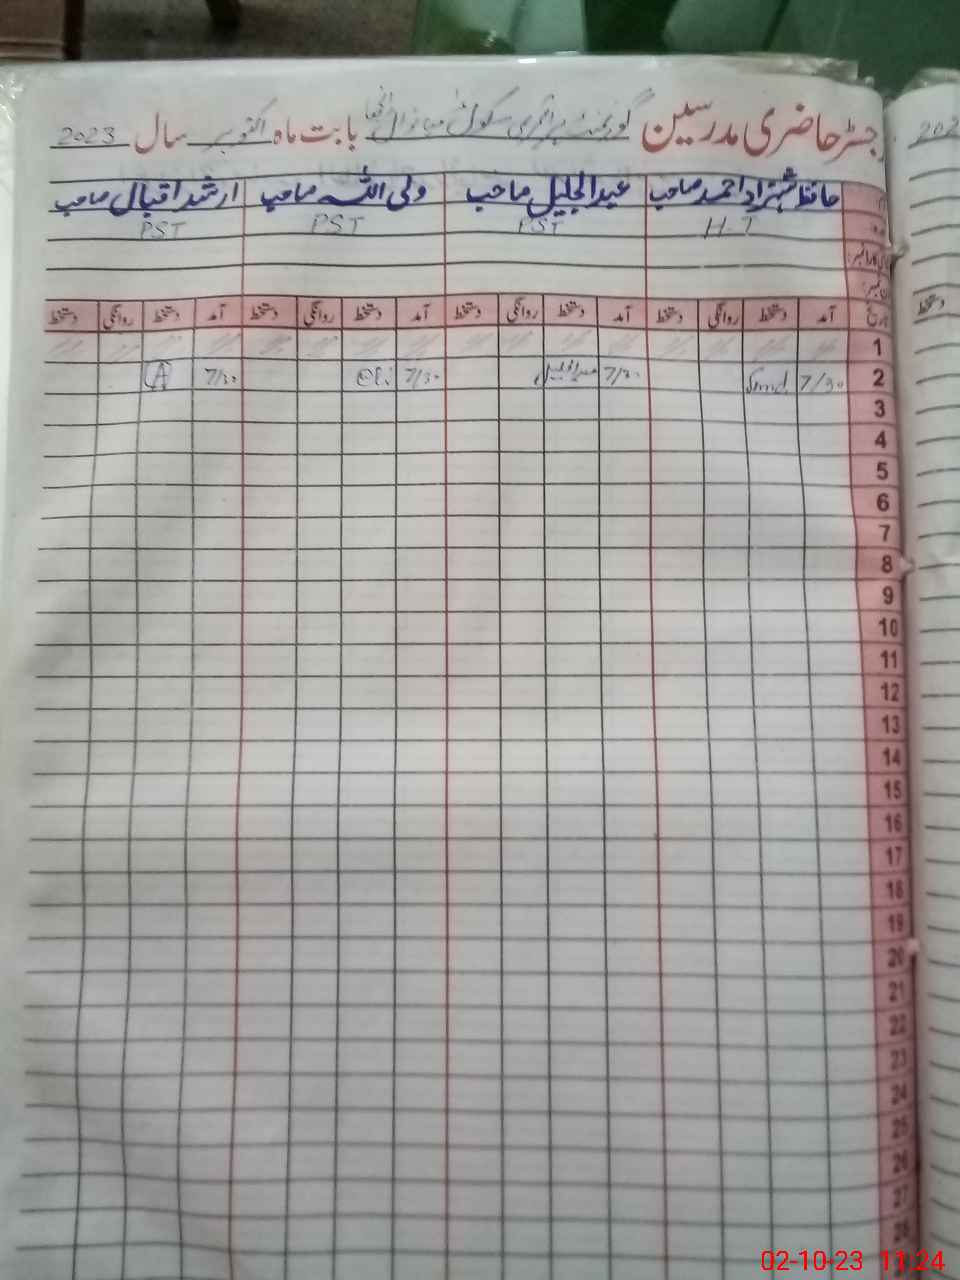 رجسٹر حاضری مدرسین گورنمنٹ پرائمری سکول بابت ماہ اکتوبر سال 2023
202
حافظ شہزاد احمد صاحب عبدالجلیل صاحب ولی اللہ صاحب ارشد اقبال صاحب
H.T PST PST PST
تاریخ آمد دستخط روانگی دستخط آمد دستخط روانگی دستخط آمد دستخط روانگی دستخط آمد دستخط روانگی دستخط
دستخط
1
2 7/30 7/30 عبدالجلیل 7/30 7/30 A
3
4
5
6
7
8
9
10
11
12
13
14
15
16
17
18
19
20
21
22
23
24
25
26
27
28
02-10-23 11:24